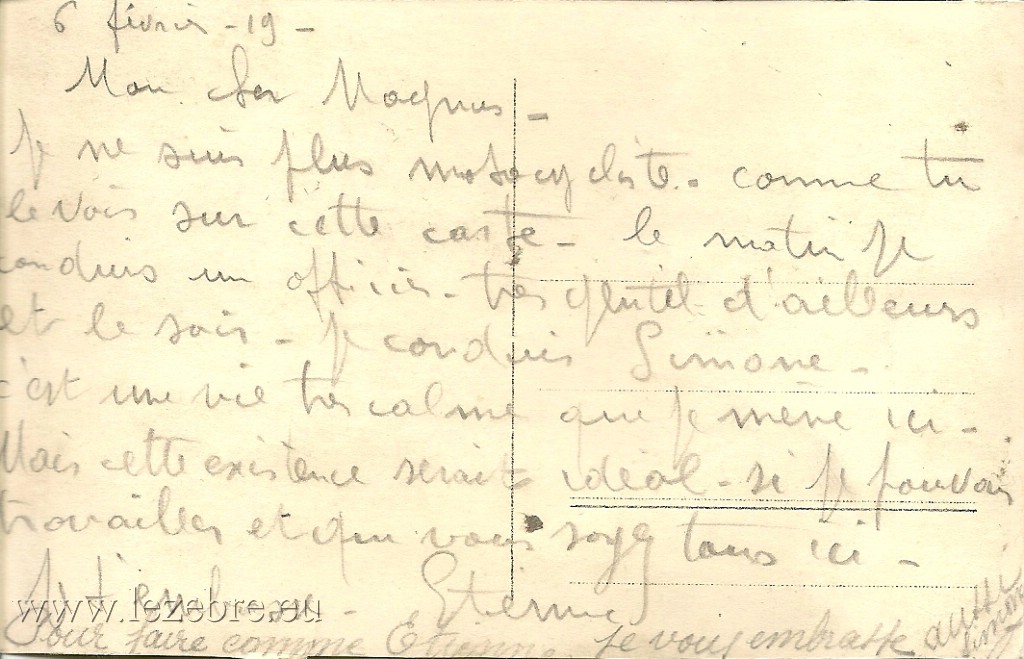 6 février - 19 -
Mon cher Magnus -
Je ne suis plus motocycliste - comme tu
le vois sur cette carte - le matin je
conduis un officier - très gentil d'ailleurs
et le soir - je conduis Simone -
c'est une vie très calme que je mène ici -
Mais cette existence serait idéal - si je pouvais
travailler et que vous soyez tous ici -
Je t'embrasse - Etienne
www.lezebre.eu
Pour faire comme Etienne je vous embrasse aussi
Simone